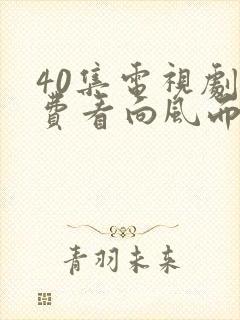 40集電視劇
費看向風而
青羽未来